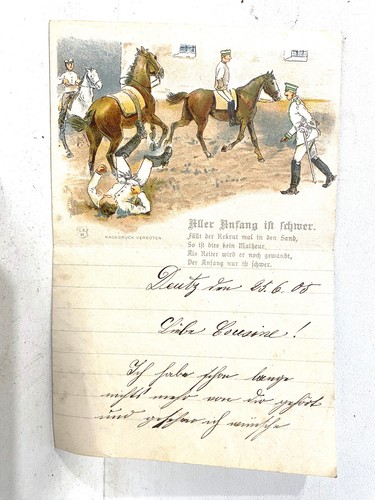 NACHDRUCK VERBOTEN
Aller Anfang ist schwer.
Fällt der Rekrut mal in den Sand,
So ist dies kein Malheur,
Als Reiter wird er noch gewandt,
Der Anfang nur ist schwer.
Deutz den 25.6.05
Liebe Cousine!
Ich habe schon lange
nichts mehr von dir gehört
und gesehen ich wünsche